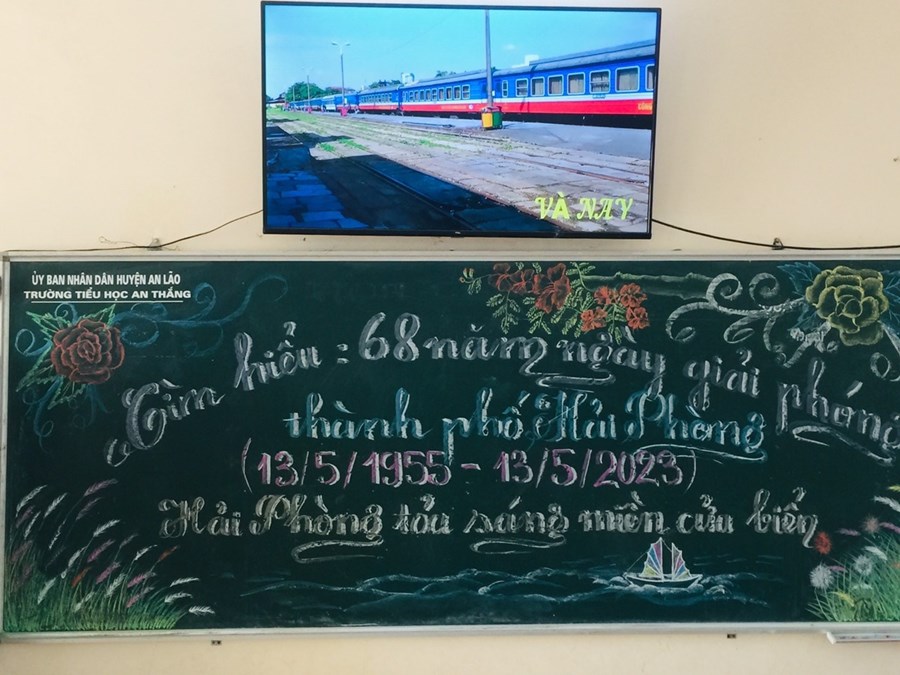 VÀ NAY
ỦY BAN NHÂN DÂN HUYỆN AN LÃO
TRƯỜNG TIỂU HỌC AN THẮNG
Tìm hiểu : 68 năm ngày giải phóng
thành phố Hải Phòng
(13/5/1955 - 13/5/2023)
Hải Phòng tỏa sáng miền cửa biển